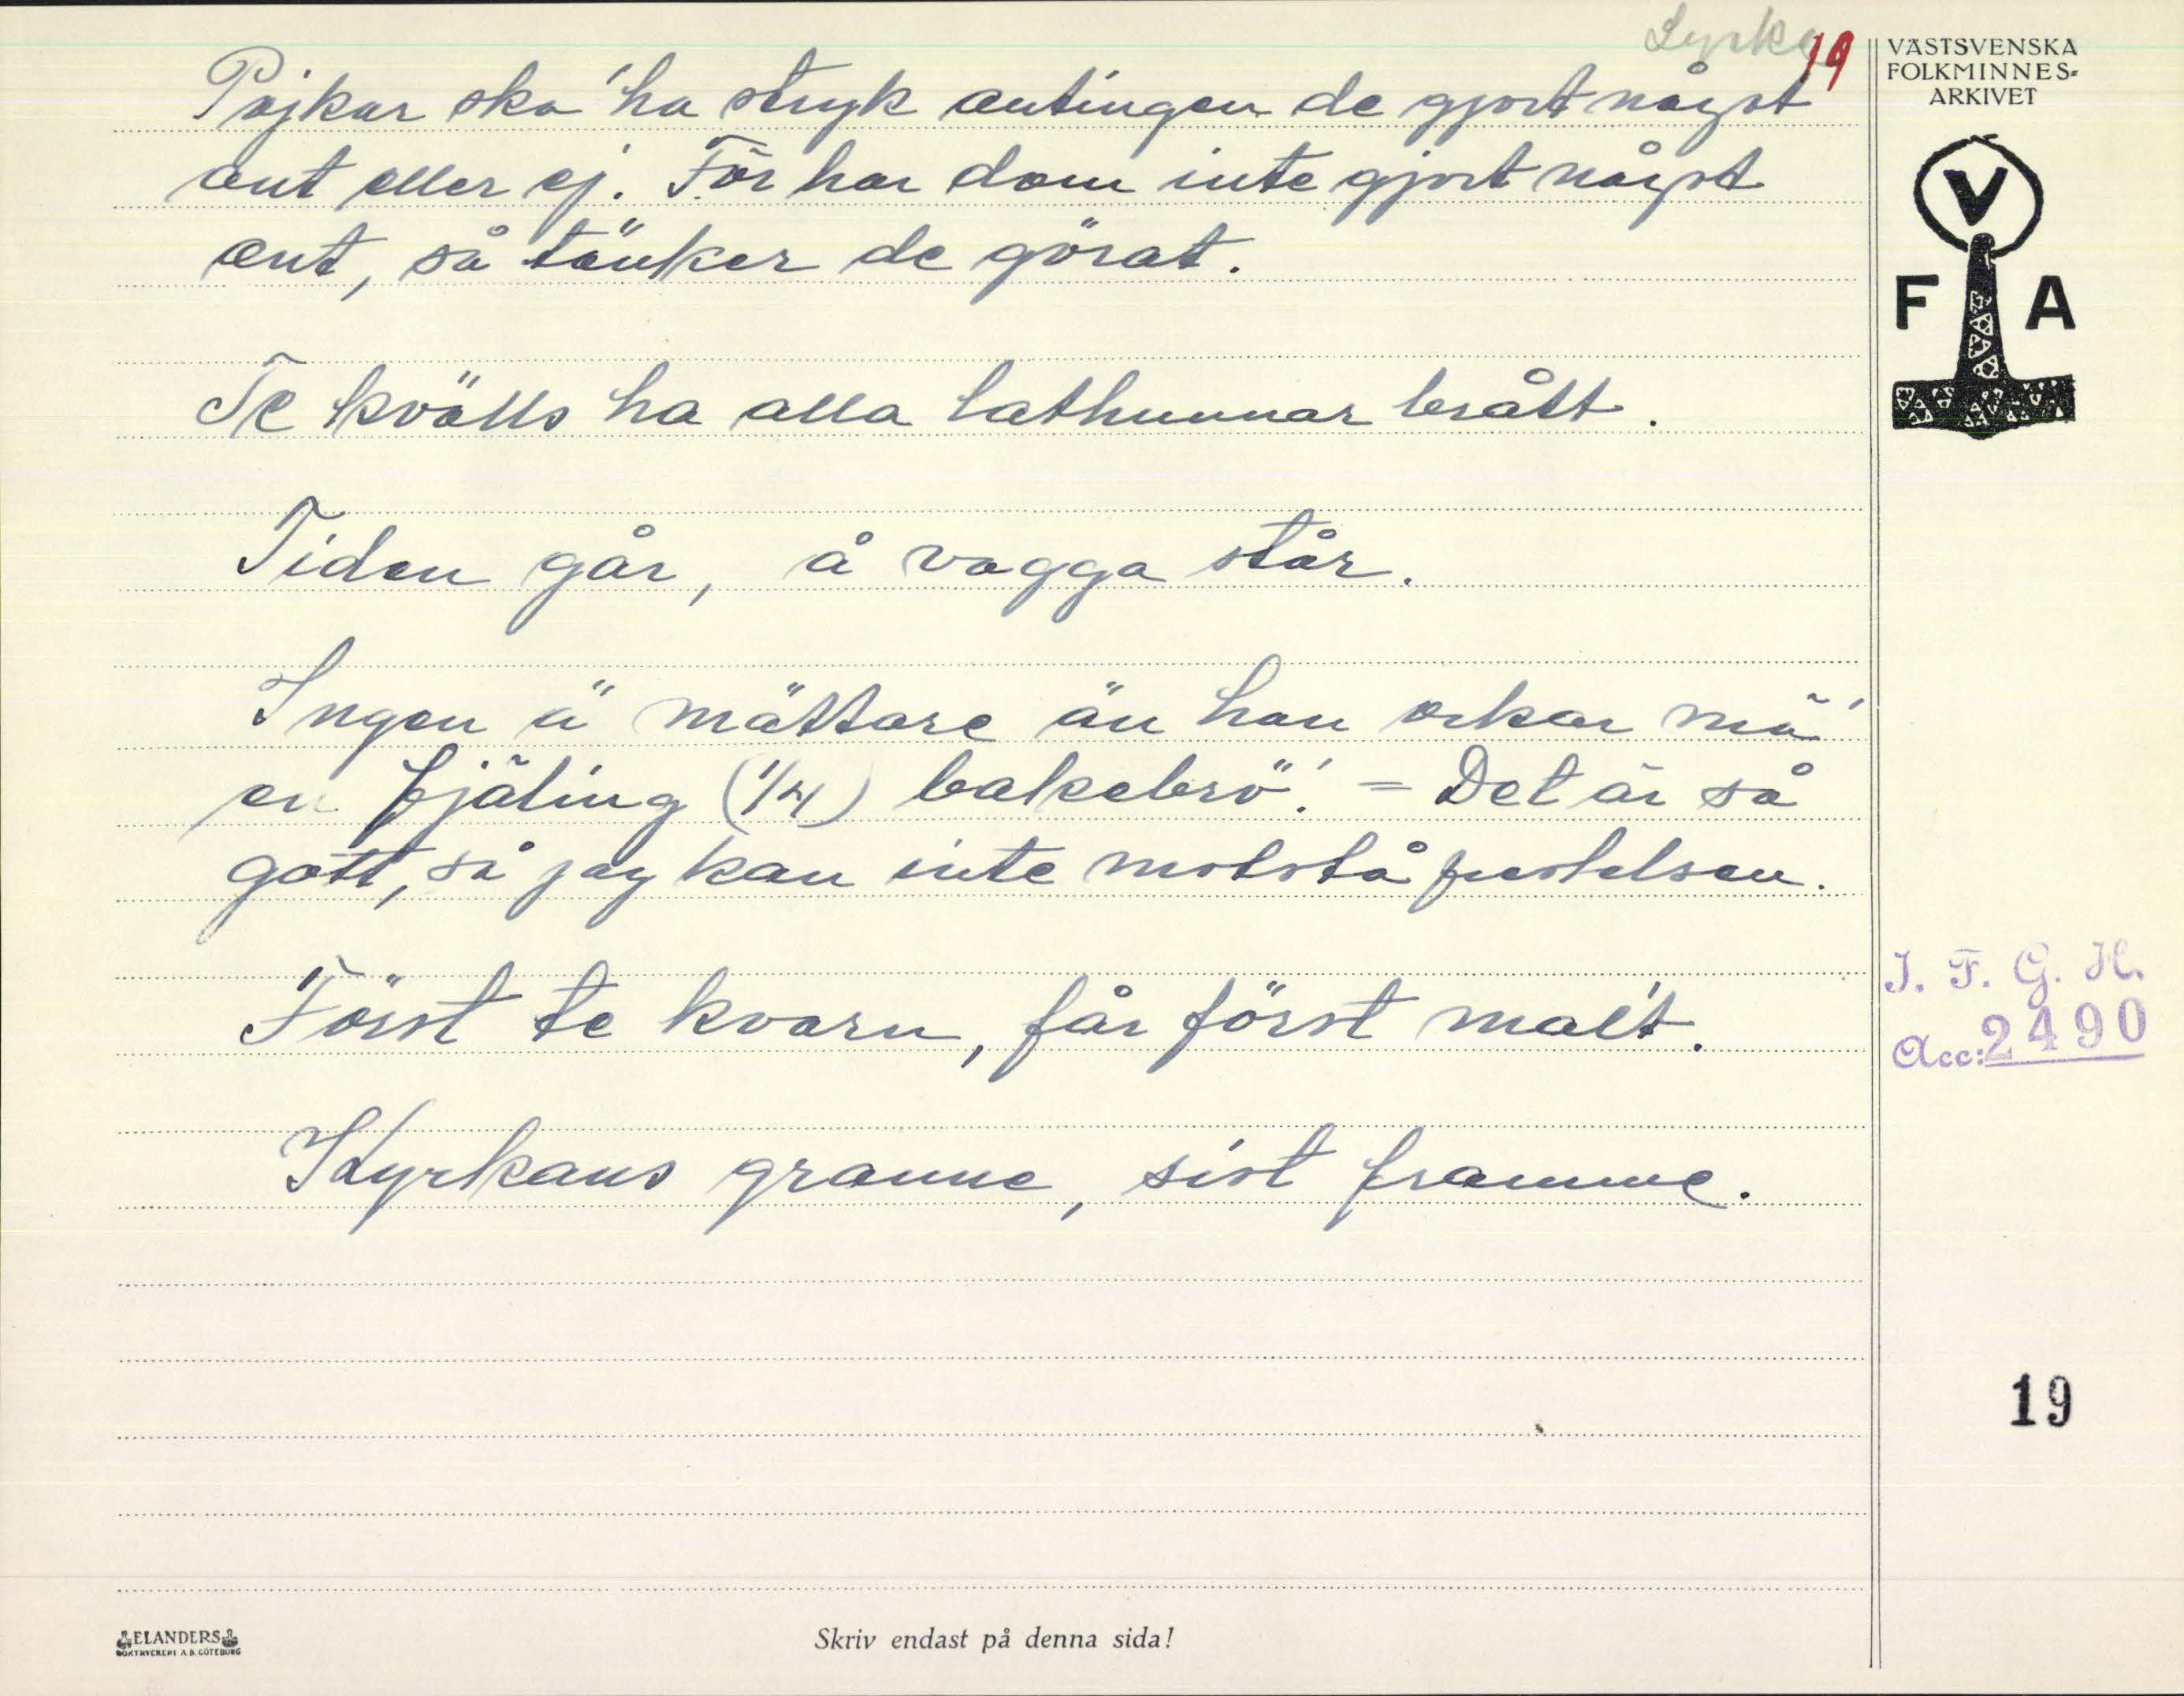 Lyrke 19
Pojkar ska' ha stryk antingen de gjort någst
ont eller ej. För har dom inte gjort någst
ont, så tänker de görat.
Te kvälls ha alla lathunnar brått.
Tiden går, å vagga står.
Ingen ä mättare än han orkar mä'
en fjäling (1/4) bakebrö'! = Det är så
gott, så jag kan inte motstå frestelsen.
Först te kvarn, får först male't.
Kyrkans granne, sist framme.
VÄSTSVENSKA
FOLKMINNES-
ARKIVET
V
F A
I. F. G. H.
Acc: 2490
19
ELANDERS
BOKTRYCKERI A.B. GÖTEBORG
Skriv endast på denna sida!